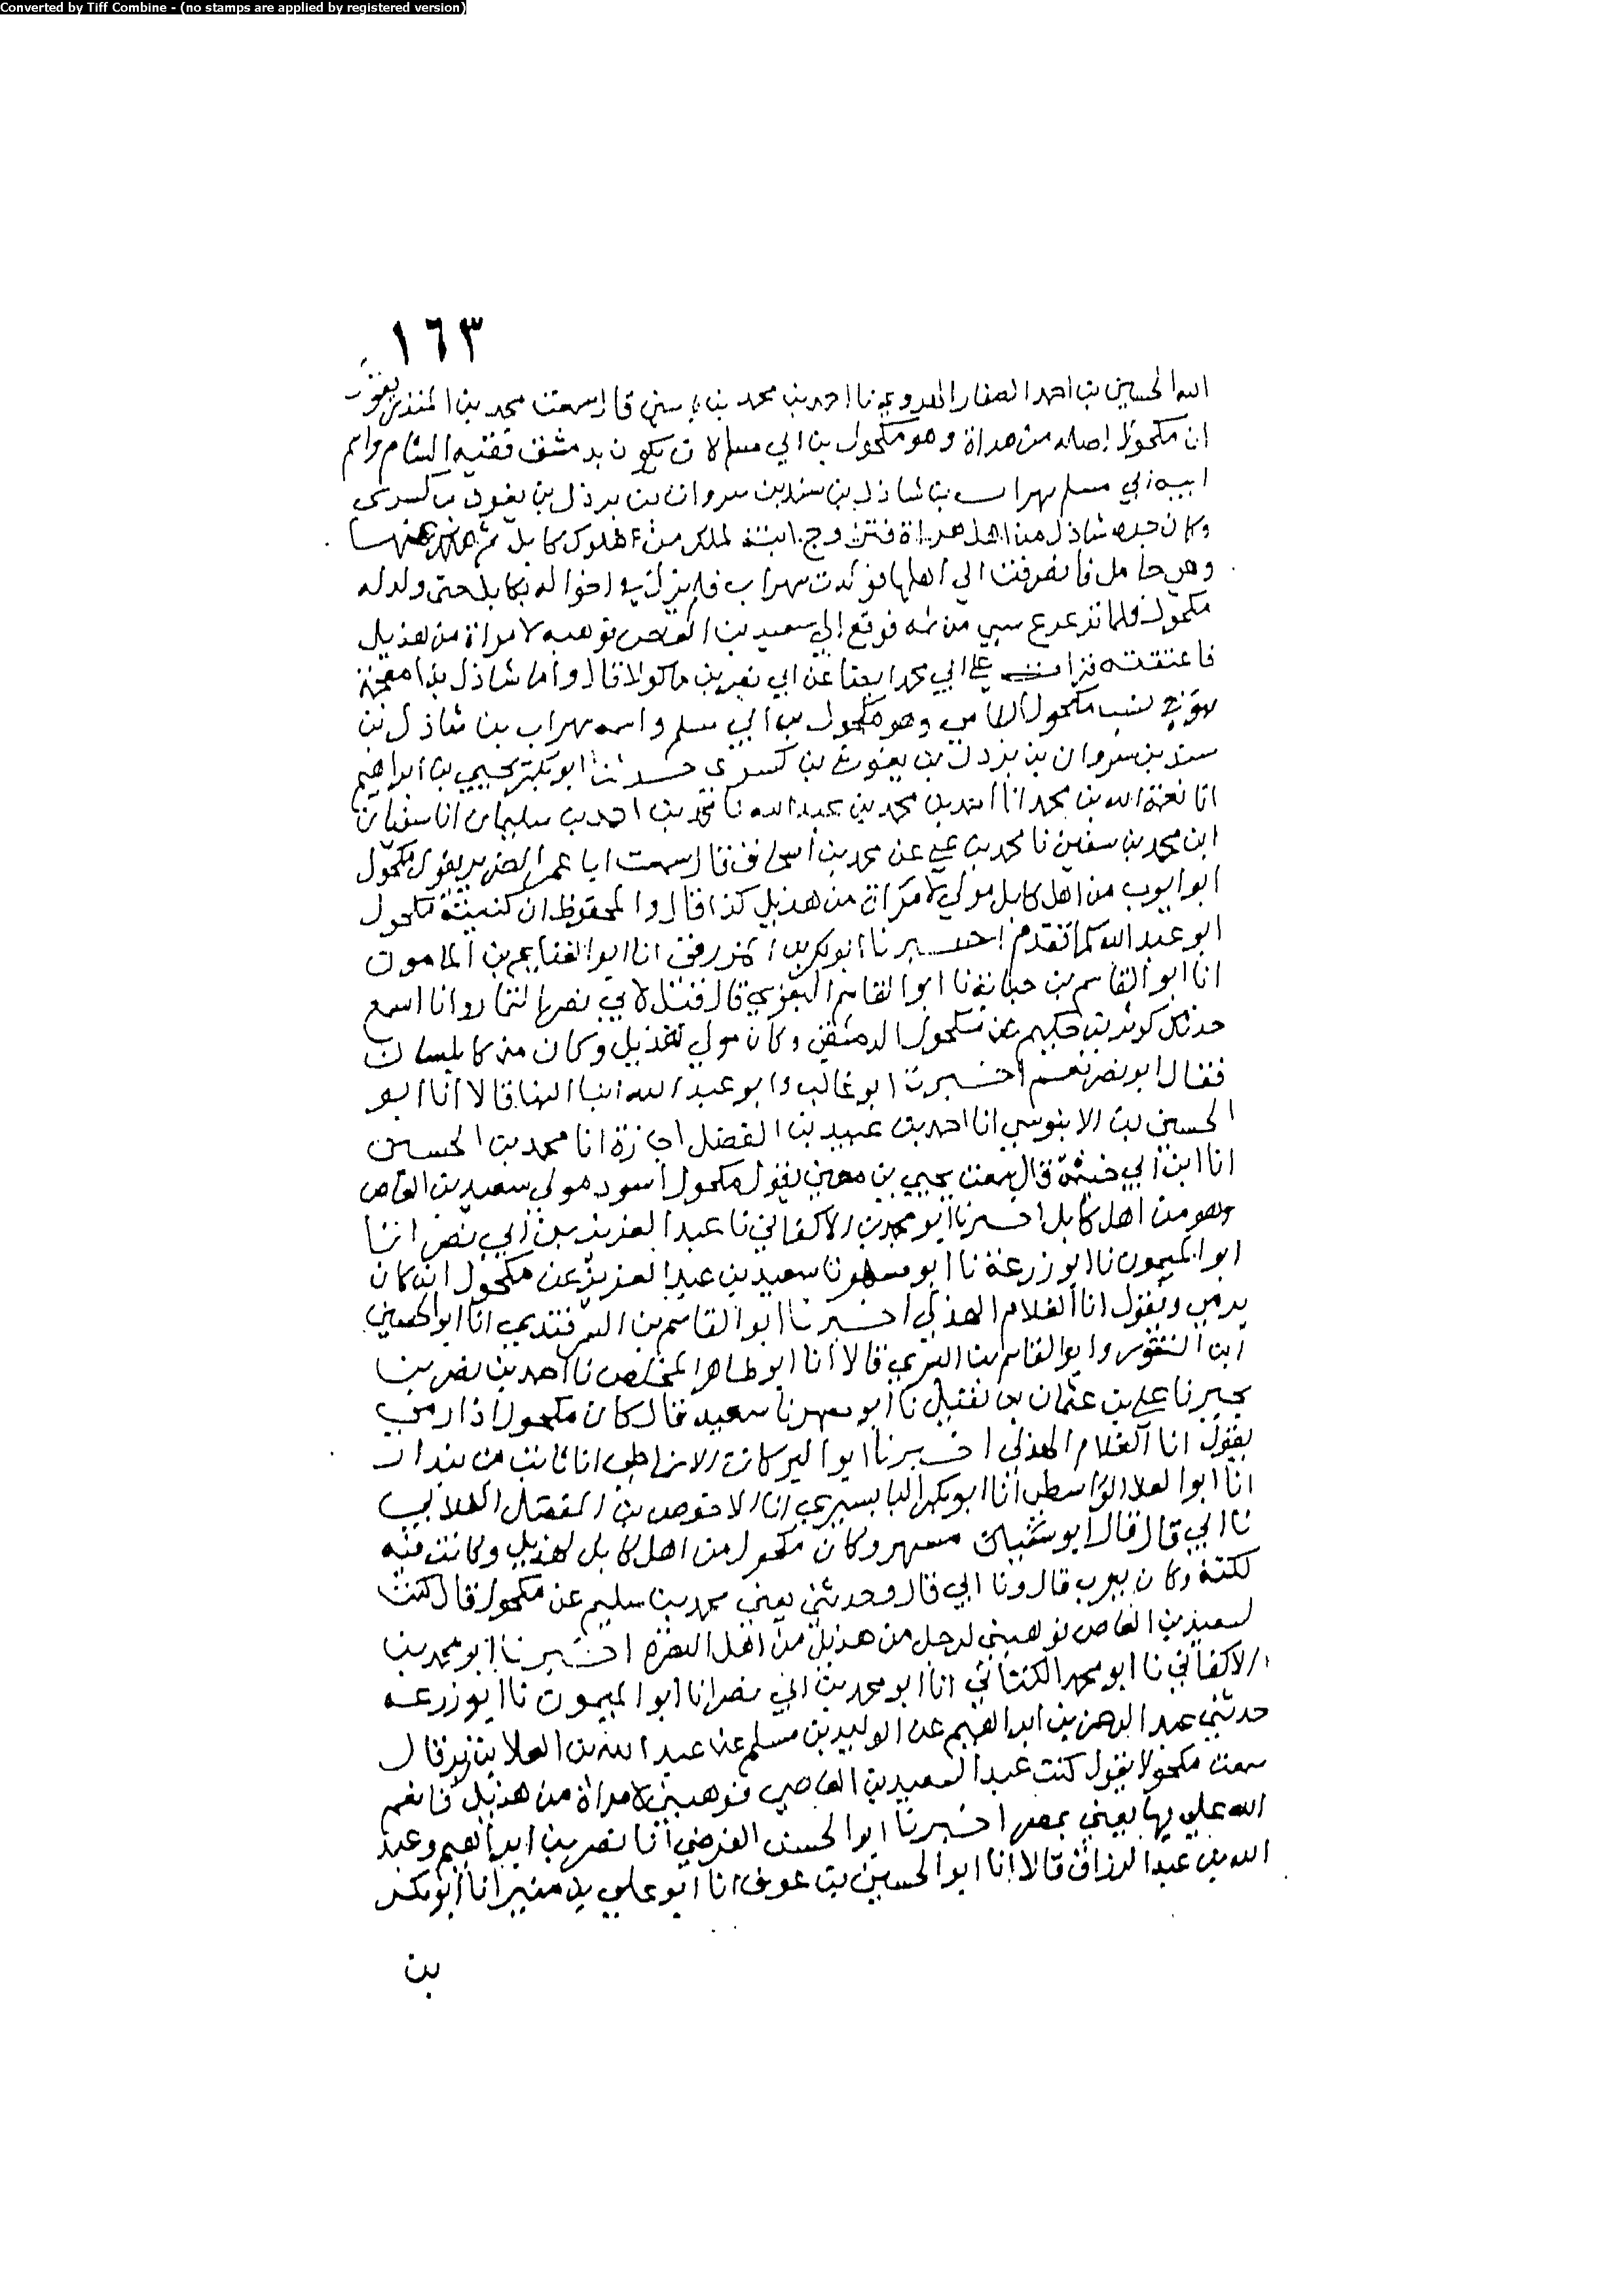 Converted by Tiff Combine - (no stamps are applied by registered version)
١٦٣
الله الحسين بن احمد الصفار الهروي نا احمد بن محمد بن ياسين قال سمعت محمد بن المنذر يقول
ان مكحولا اصله من هراة وهو مكحول بن ابي مسلم كان يكون بدمشق فقيه الشام واسم
ابيه ابي مسلم سهراب بن شاذل بن سند بن سروان بن بردك بن يغوث بن كسرى
وكان جده شاذل من اهل هراة فتزوج ابنة لملك من ملوك كابل ثم هلك عنها
وهي حامل فانصرفت الى اهلها فولدت سهراب فلم يزل في اخواله بكابل حتى ولد له
مكحول فلما ترعرع سبي من ثمه فوقع الى سعيد بن العاص فوهبه لامراة من هذيل
فاعتقته قرات على ابي محمد ايضا عن ابي نصر بن ماكولا قال واما شاذل بذال معجمة
فهو في نسب مكحول الشامي وهو مكحول بن ابي مسلم واسمه سهراب بن شاذل بن
سند بن سروان بن بزدك بن يغوث بن كسرى حدثنا ابو بكر يحيى بن ابراهيم
انا نعمة الله بن محمد انا احمد بن محمد بن عبد الله نا محمد بن احمد بن سليمان انا سفيان
ابن محمد بن سفين نا محمد بن علي عن محمد بن اسحاق قال سمعت ابا عمر الضرير يقول مكحول
ابو ايوب من اهل كابل مولى لامراة من هذيل كذا قال والمحفوظ ان كنية مكحول
ابو عبد الله كما تقدم اخبرنا ابو بكر بن المزرفي انا ابو الغنايم بن المامون
انا ابو القاسم بن حبابة نا ابو القاسم البغوي قال قيل لابي نصر التمار وانا اسمع
حدثكم كوثر بن حكيم عن مكحول الدمشقي وكان مولى لهذيل وكان من كابلستان
فقال ابو نصر نعم اخبرنا ابو غالب وابو عبد الله ابنا البنا قالا انا ابو
الحسين بن الابنوسي انا احمد بن عبيد بن الفضل اجازة انا محمد بن الحسين
انا ابن ابي خيثمة قال سمعت يحيى بن معين يقول مكحول اسود مولى سعيد بن العاص
وهو من اهل كابل اخبرنا ابو محمد بن الاكفاني نا عبد العزيز بن ابي نصر انا
ابو الميمون نا ابو زرعة نا ابو مسهر نا سعيد بن عبد العزيز عن مكحول انه كان
يرمي ويقول انا الغلام الهذلي اخبرنا ابو القاسم بن السمرقندي انا ابو الحسين
ابن النقور وابو القاسم بن البسري قالا انا ابو طاهر المخلص نا احمد بن نصر بن
بجير نا علي بن عثمان بن نفيل نا ابو مسهر نا سعيد قال كان مكحول اذا رمى
يقول انا الغلام الهذلي اخبرنا ابو البركات الانماطي انا ثابت بن بندار
انا ابو العلا الواسطي انا ابو بكر البابسيري انا الاحوص بن المفضل الغلابي
نا ابي قال قال ابو مسهر وكان مكحول من اهل كابل لهذيل وكانت فيه
لكنة وكان يعرب قال ونا ابي قال وحدثني يعني محمد بن سليم عن مكحول قال كنت
لسعيد بن العاص فوهبني لرجل من هذيل من اهل البصرة اخبرنا ابو محمد بن
الاكفاني نا ابو محمد الكتاني انا ابو محمد بن ابي نصر انا ابو الميمون نا ابو زرعه
حدثني عبد الرحمن بن ابراهيم عن الوليد بن مسلم عن عبد الله بن العلا بن زبر قال
سمعت مكحولا يقول كنت عبدا لسعيد بن العاصي فوهبني لامراة من هذيل فانعم
الله علي بها يعني بمصر اخبرنا ابو الحسن الفرضي انا نصر بن ابراهيم وعبد
الله بن عبد الرزاق قالا انا ابو الحسين بن عوف انا ابو علي بن منير انا ابو بكر
بن